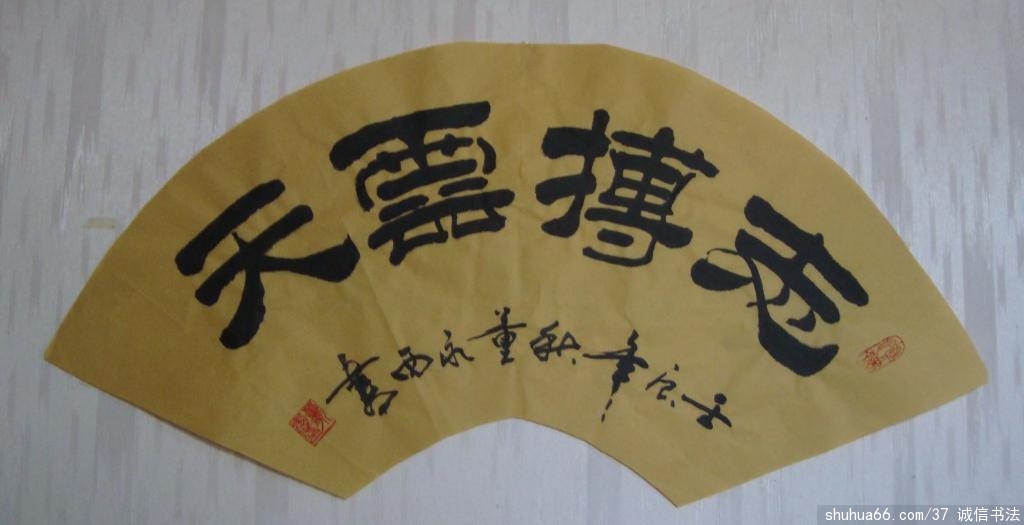 志搏雲天
壬辰年秋董永西書
shuhua66.com/37 诚信书法